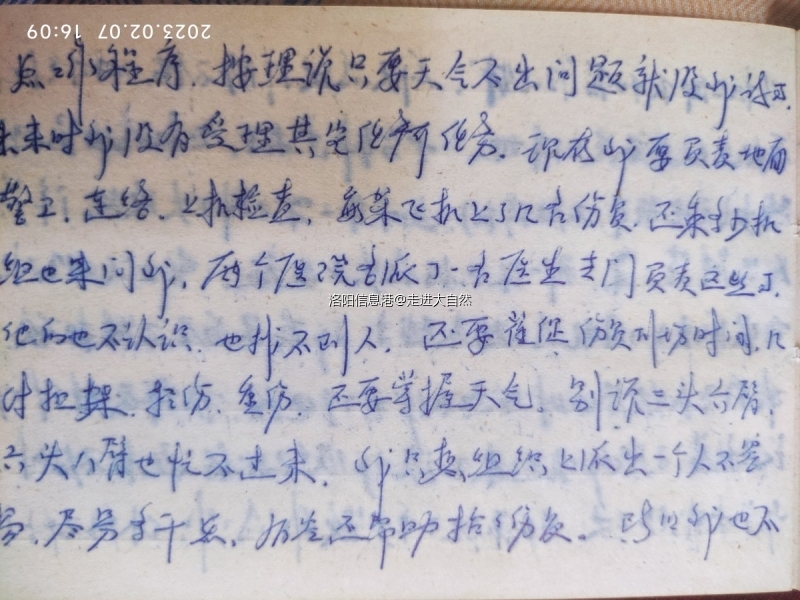 2023.02.07 16:09
点工作程序.按理说只要天气不出问题就没我该了.
来时我没有受理其它任何任务.现在我要负责地面
警卫.连络.上机检查,每架飞机上了几名伤员.还来多少机
组也来问我,两个医院都派了一名医生专门负责这些了.
他们也不认识.也找不到人.还要催促伤员到场时间.几
付担架.轻伤.重伤.还要掌握天气.别说三头六臂,
六头八臂也忙不过来.我只是组织上派出一个人不容
易.尽量多干点,有些还帮助抬了伤员。所以我也不
洛阳信息港@走进大自然